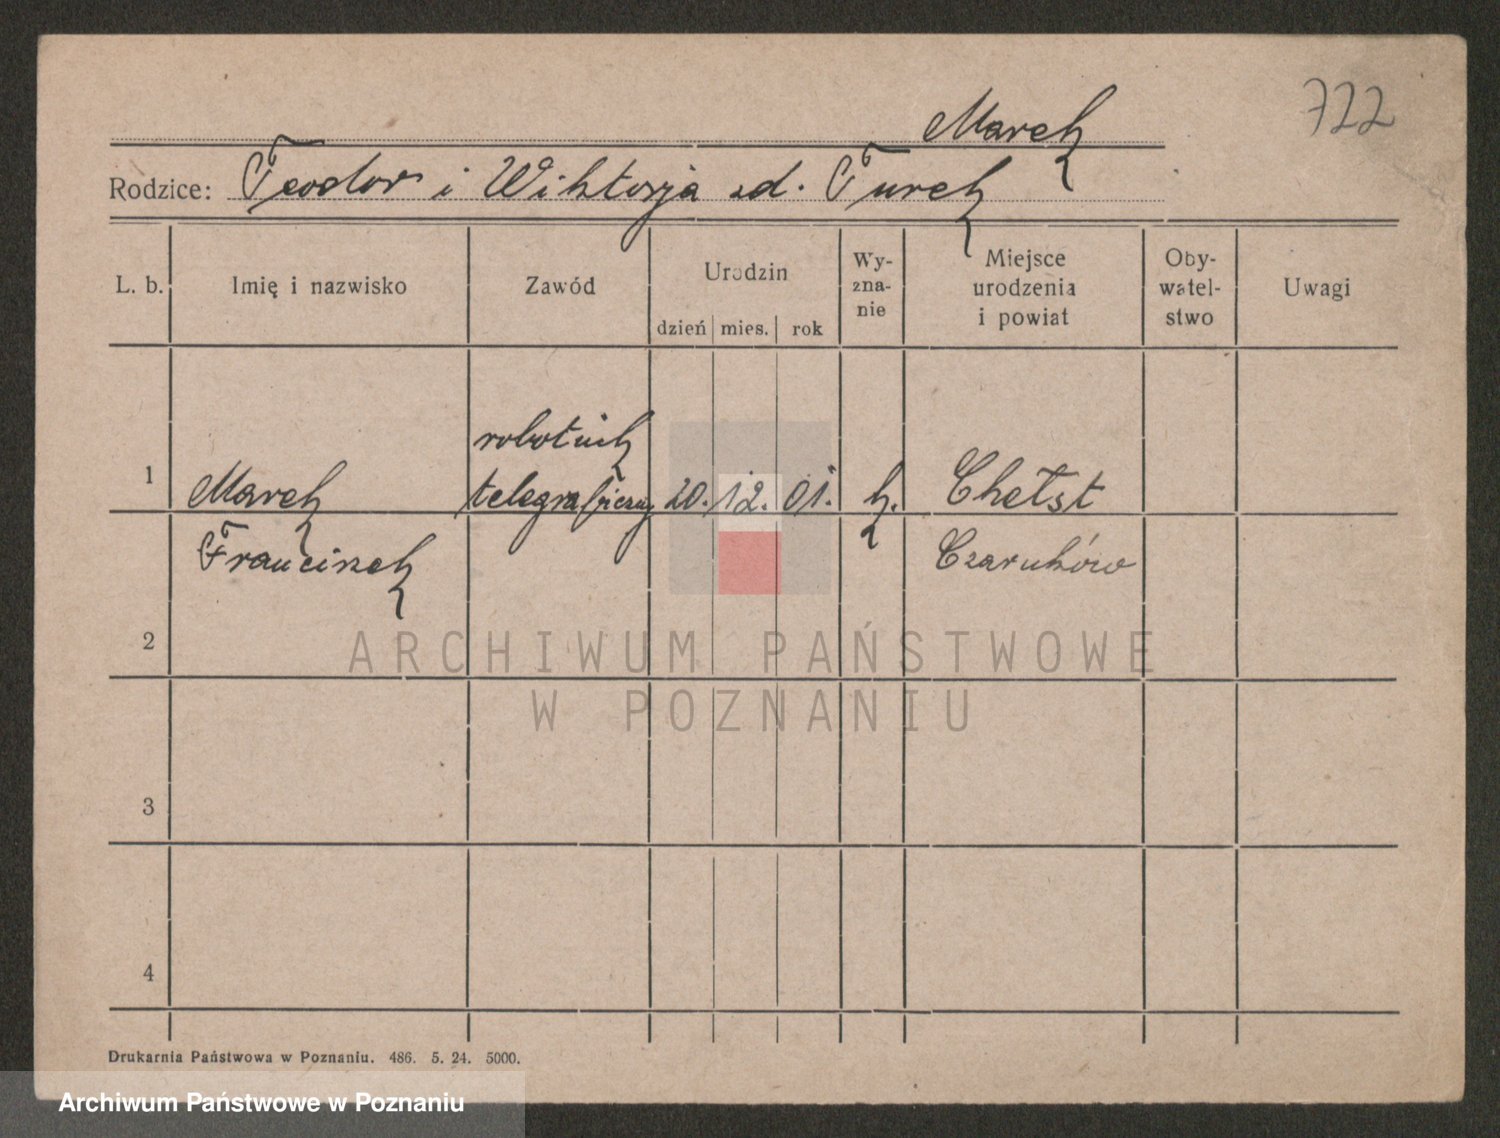 722
Marek
Rodzice: Teodor i Wiktorja zd. Turek
L. b. Imię i nazwisko Zawód Urodzin Wy-zna-nie Miejsce urodzenia i powiat Oby-watel-stwo Uwagi
dzień mies. rok
robotnik
1 Marek telegraficzny 20. 12. 01. k. Chełst
Franciszek Czarnków
2
ARCHIWUM PAŃSTWOWE
W POZNANIU
3
4
Drukarnia Państwowa w Poznaniu. 486. 5. 24. 5000.
Archiwum Państwowe w Poznaniu